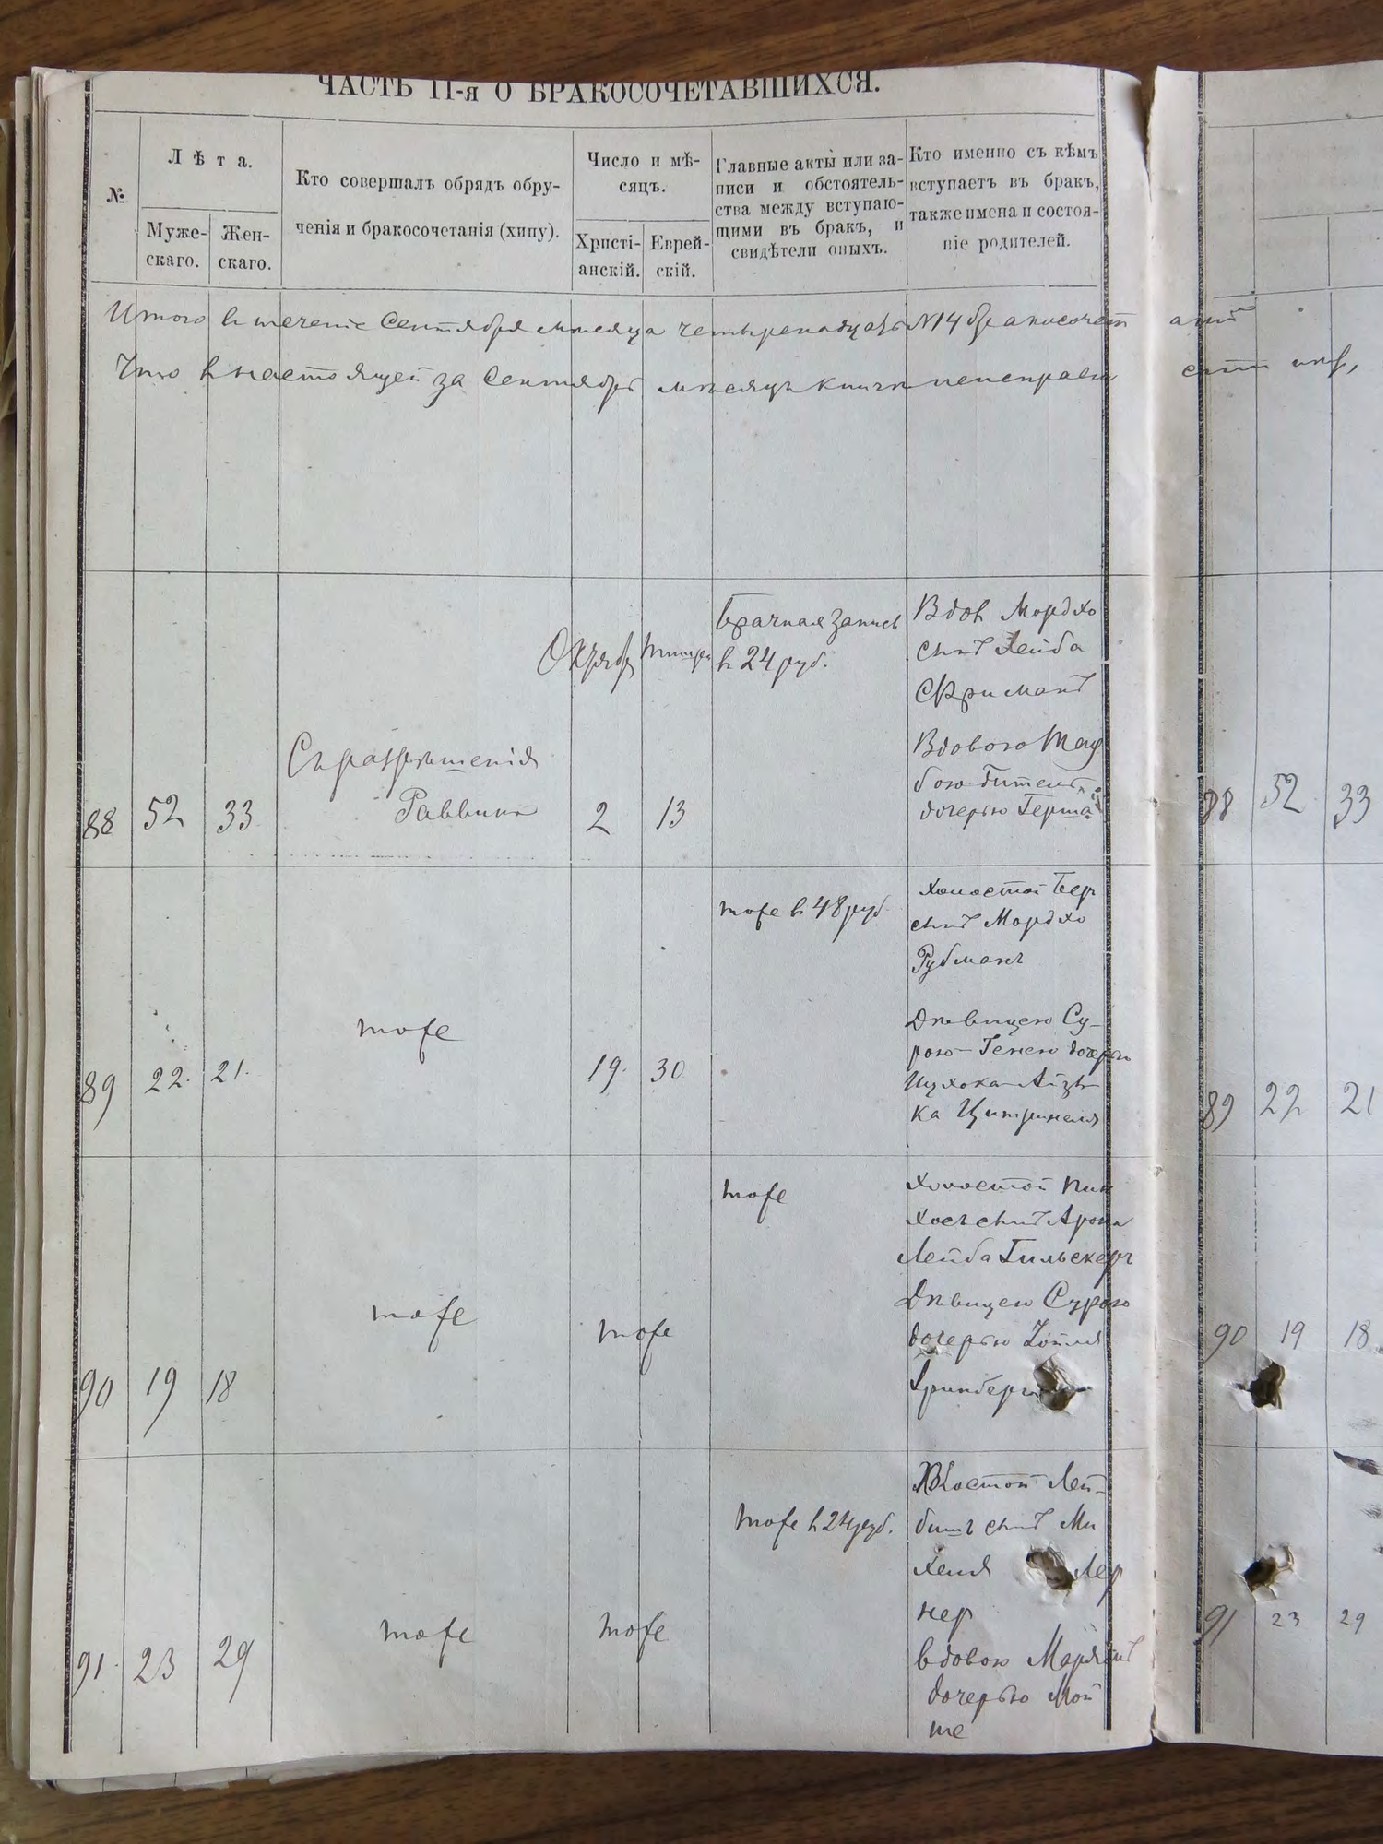 ЧАСТЬ II-я О БРАКОСОЧЕТАВШИХСЯ.
№
Лѣта.
Муже-
скаго.
Жен-
скаго.
Кто совершалъ обрядъ обру-
ченія и бракосочетанія (хипу).
Число и мѣ-
сяцъ.
Христі-
анскій.
Еврей-
скій.
Главные акты или за-
писи и обстоятель-
ства между вступаю-
щими въ бракъ, и
свидѣтели оныхъ.
Кто именно съ кѣмъ
вступаетъ въ бракъ,
также имена и состоя-
ніе родителей.
Итого въ теченіе Сентября мѣсяца четырнадцать №14 бракосочет
Что въ настоящей за Сентябрь мѣсяцъ книги
88
52
33
Съ разрѣшенія
Раввина
Октябр
Тишри
2
13
Брачная запись
в 24 руб.
Вдов Мордхо
сынъ Лейба
Фриманъ
Вдовою
дочерью Герша
88 52 33
89
22
21
тоже
19
30
тоже в 48 руб.
холостой Бер
сынъ Мордхо
Рубманъ
Дѣвицею Су-
рою-Генею дочерью
Ицхока-Айзы-
ка
89 22 21
90
19
18
тоже
тоже
тоже
холостой Пин
хосъ сынъ Арона
Лейба
Дѣвицею Сурою
дочерью
Гринберга
90 19 18
91
23
29
тоже
тоже
тоже в 24 руб.
Холостой Лей-
бишъ сынъ Ми
хеля Лер
нер
вдовою
дочерью Мой
ше
91 23 29